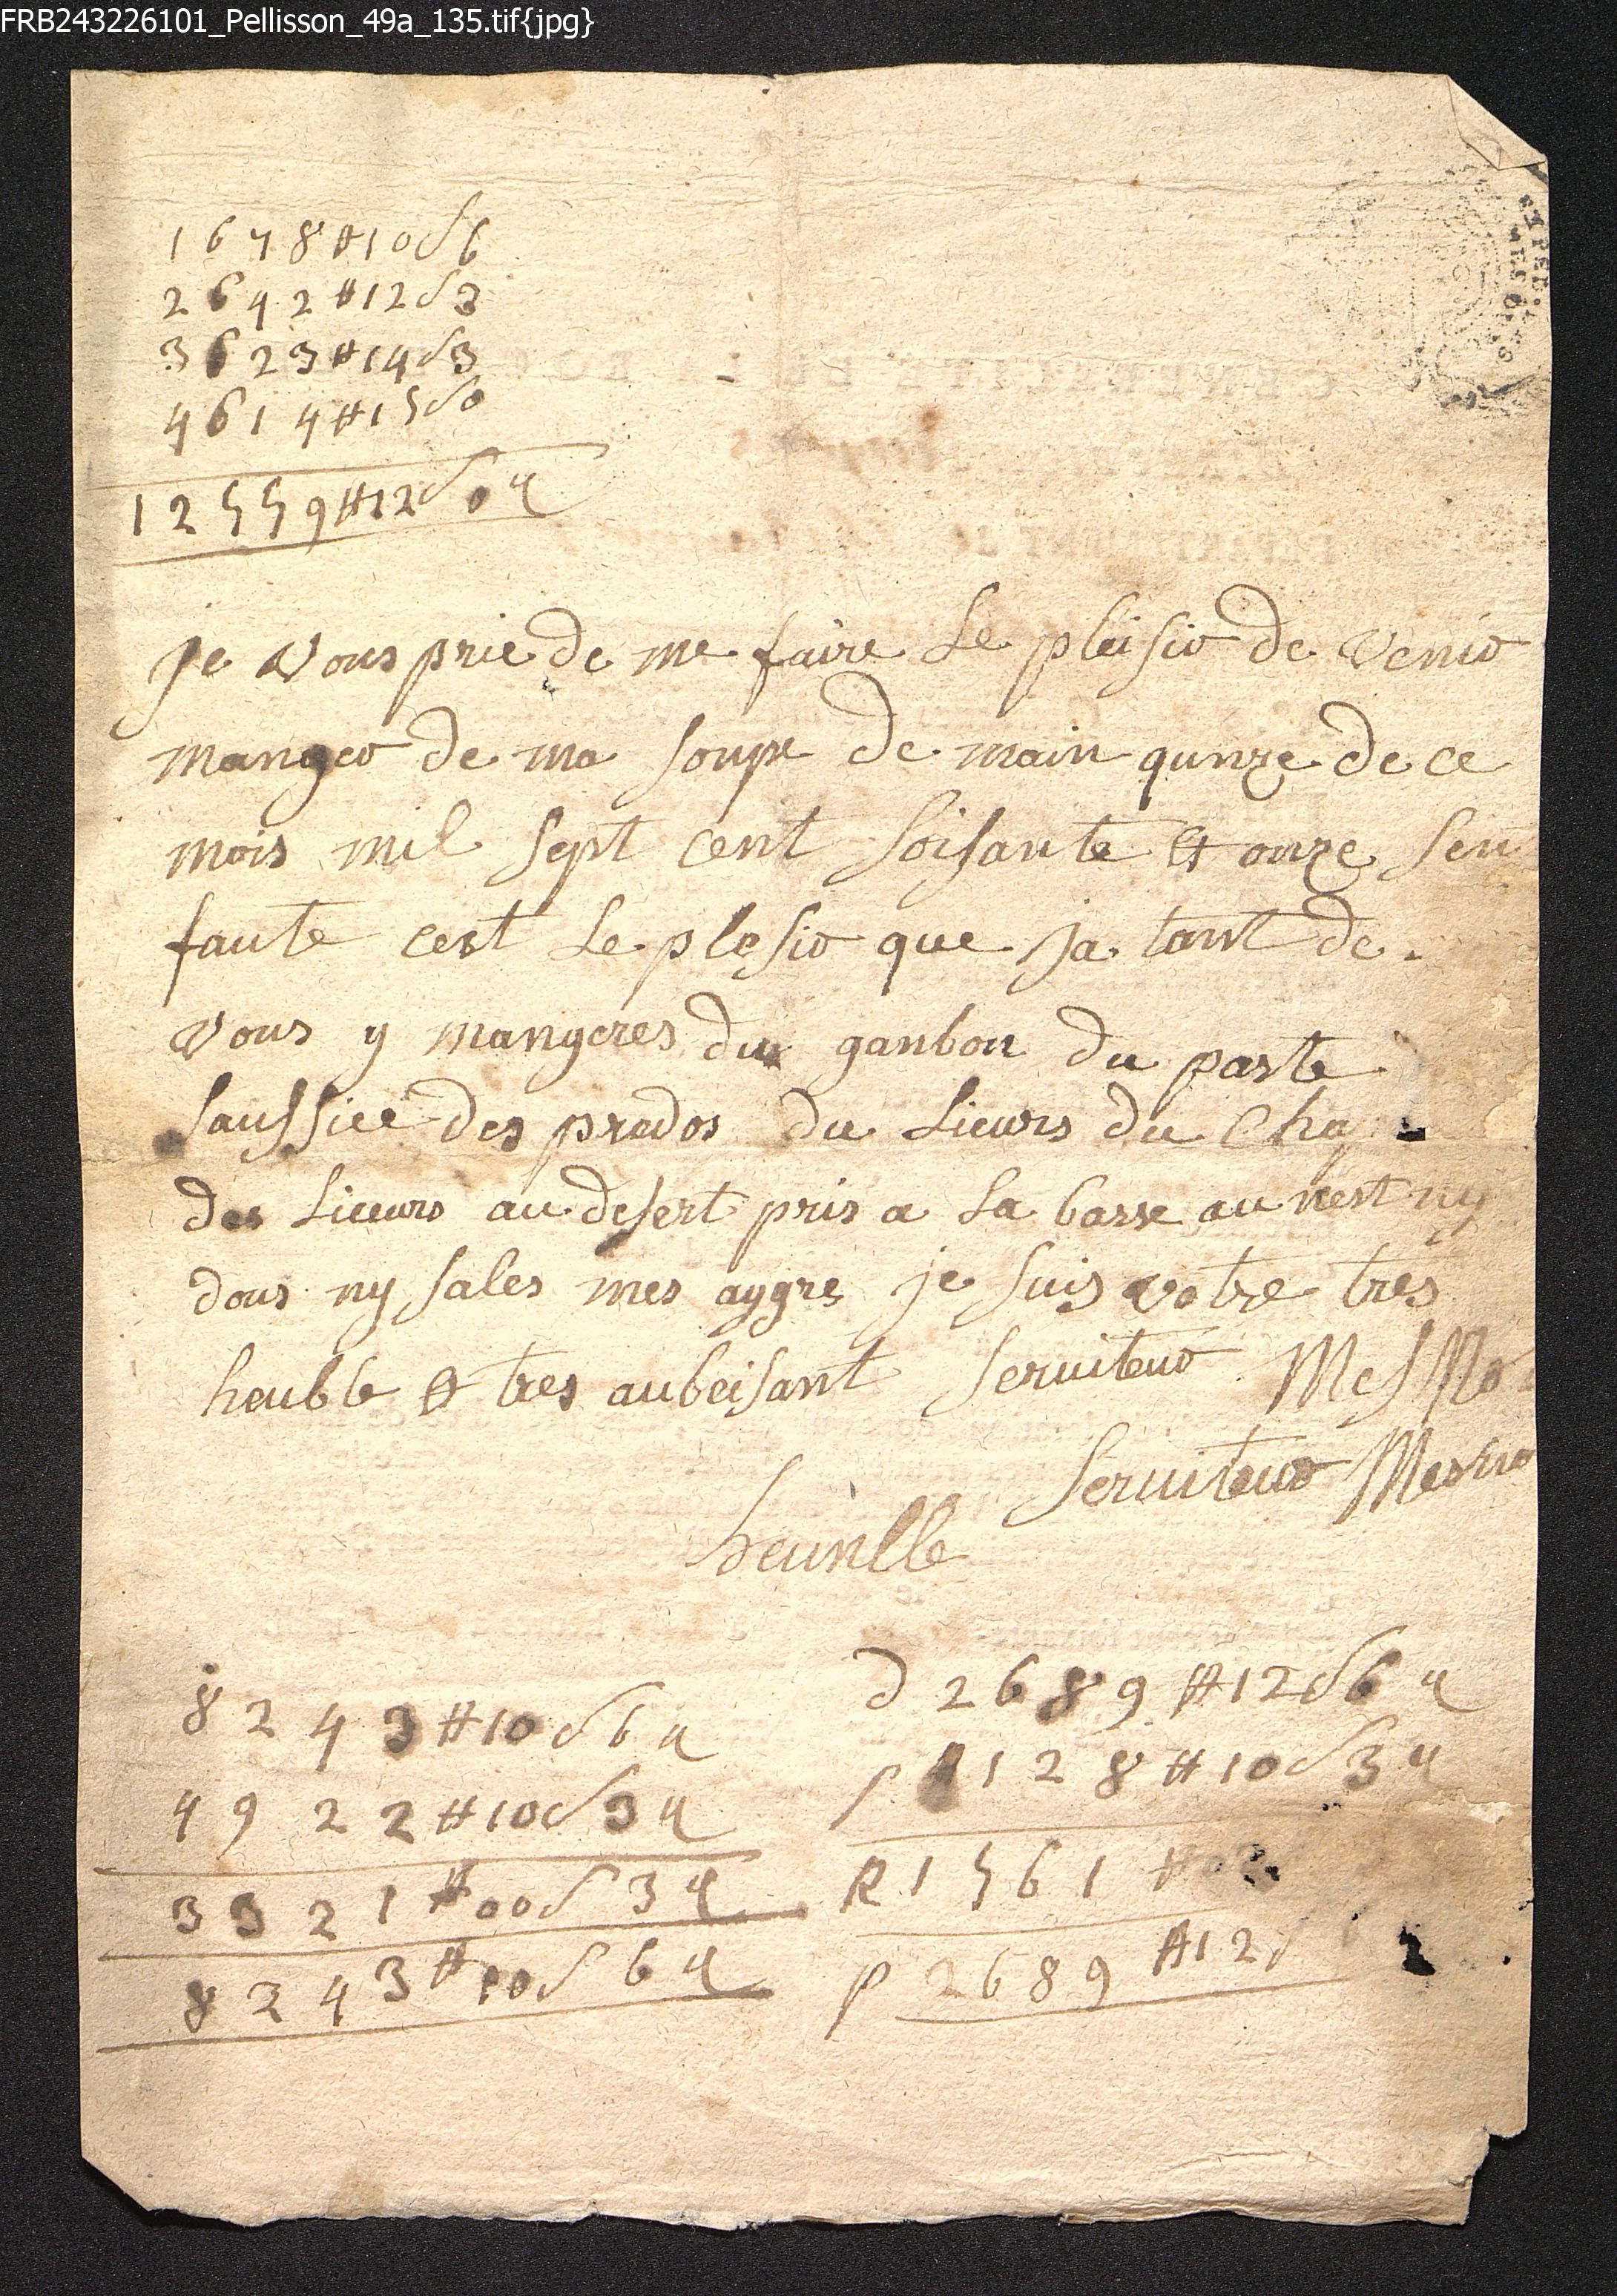 FRB243226101_Pellisson_49a_135.tif{jpg}
1678#10s6
2642#12s3
3623#14s3
4614#15s0
12559#12s0 ч
je vous prie de me faire le pleisir de venir
manger de ma soupe de main qunze de ce
mois mil sept cent soisante et onze sen
faute cest le plesir que ja tant de
vous y mangeres du ganbon du paste
saussice des prados du lieurs du cha
des lieurs au desert pris a la basse au nest ny
dous ny sales mes aygre je suis votre tres
heuble et tres aubeisant serviteur
serviteur
8243#10s6 ч
4922#10s3 ч
3321#00s3 ч
8243#10s6 ч
D 2689#12s6 ч
P 1128#10s3 ч
R 1561#
P 2689#12s